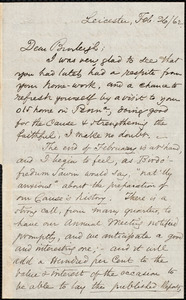 Leicester, Feb. 26/62
Dear Burleigh:
I was very glad to see that
you had lately had a respite from
your home-work, and a chance to
refresh yourself by a visit to your
old home in Penna., doing good
for the Cause & strengthening the
faithful, I make no doubt.
The end of February is at hand,
and I begin to feel, as
would say, "nat'lly
anxious" about the preparation of
our Cause's history. There is a
strong call, from many quarters, to
have our Annual Meeting notified
promptly, and we anticipate a good
and interesting one; and it will
add a hundred per cent to the
value & interest of the occasion to
be able to lay this published Report,